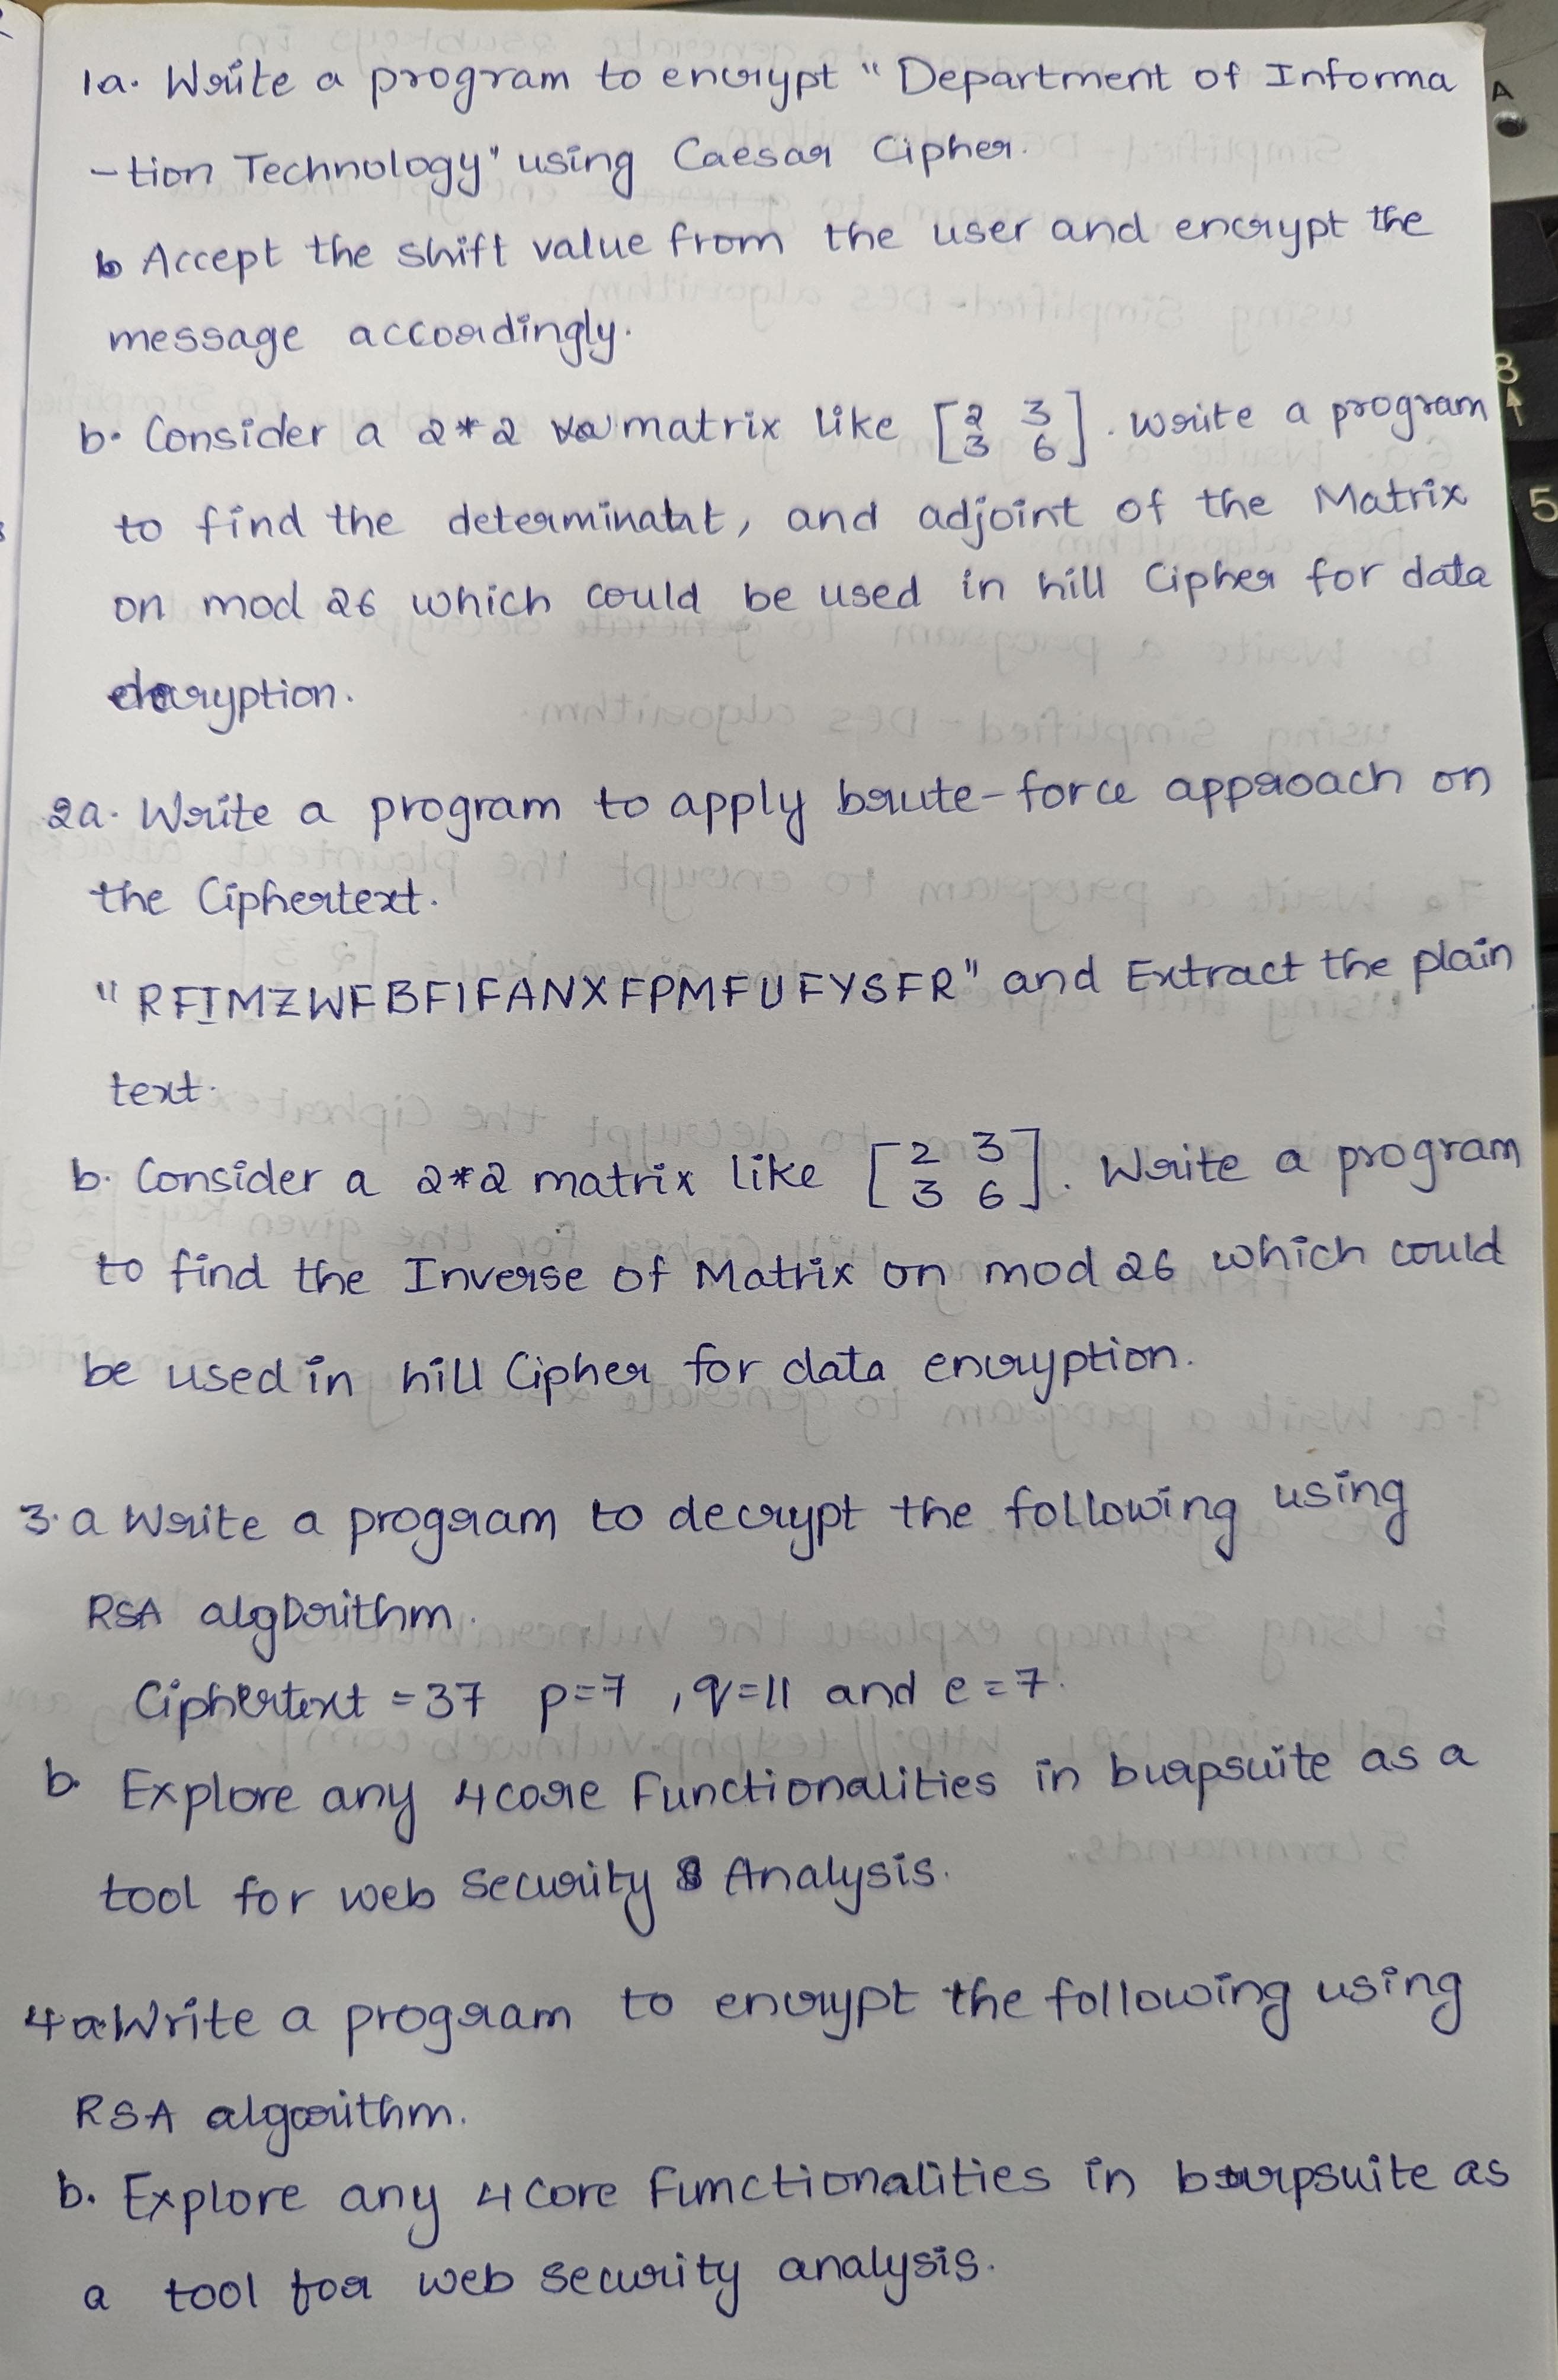 1a. Write a program to encrypt "Department of Informa
-tion Technology" using Caesar Cipher.
b Accept the shift value from the user and encrypt the
message accordingly.
b. Consider a 2*2 matrix like [2 3
3 6]. Write a program
to find the determinant, and adjoint of the Matrix
on mod 26 which could be used in hill Cipher for data
decryption.
2a. Write a program to apply brute-force approach on
the Ciphertext.
"RFIMZWFBFIFANXFPMFUFYSFR" and Extract the plain
text.
b. Consider a 2*2 matrix like [2 3
3 6]. Write a program
to find the Inverse of Matrix on mod 26 which could
be used in hill Cipher for data encryption.
3.a Write a program to decrypt the following using
RSA algorithm.
Ciphertext = 37 p=7 , q=11 and e=7.
b. Explore any 4 core Functionalities in burpsuite as a
tool for web Security & Analysis.
4a Write a program to encrypt the following using
RSA algorithm.
b. Explore any 4 core functionalities in burpsuite as
a tool for web security analysis.
A
8
5